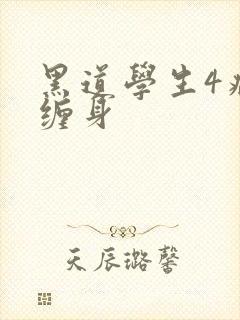 黑道學生4
缠身
天辰璐馨